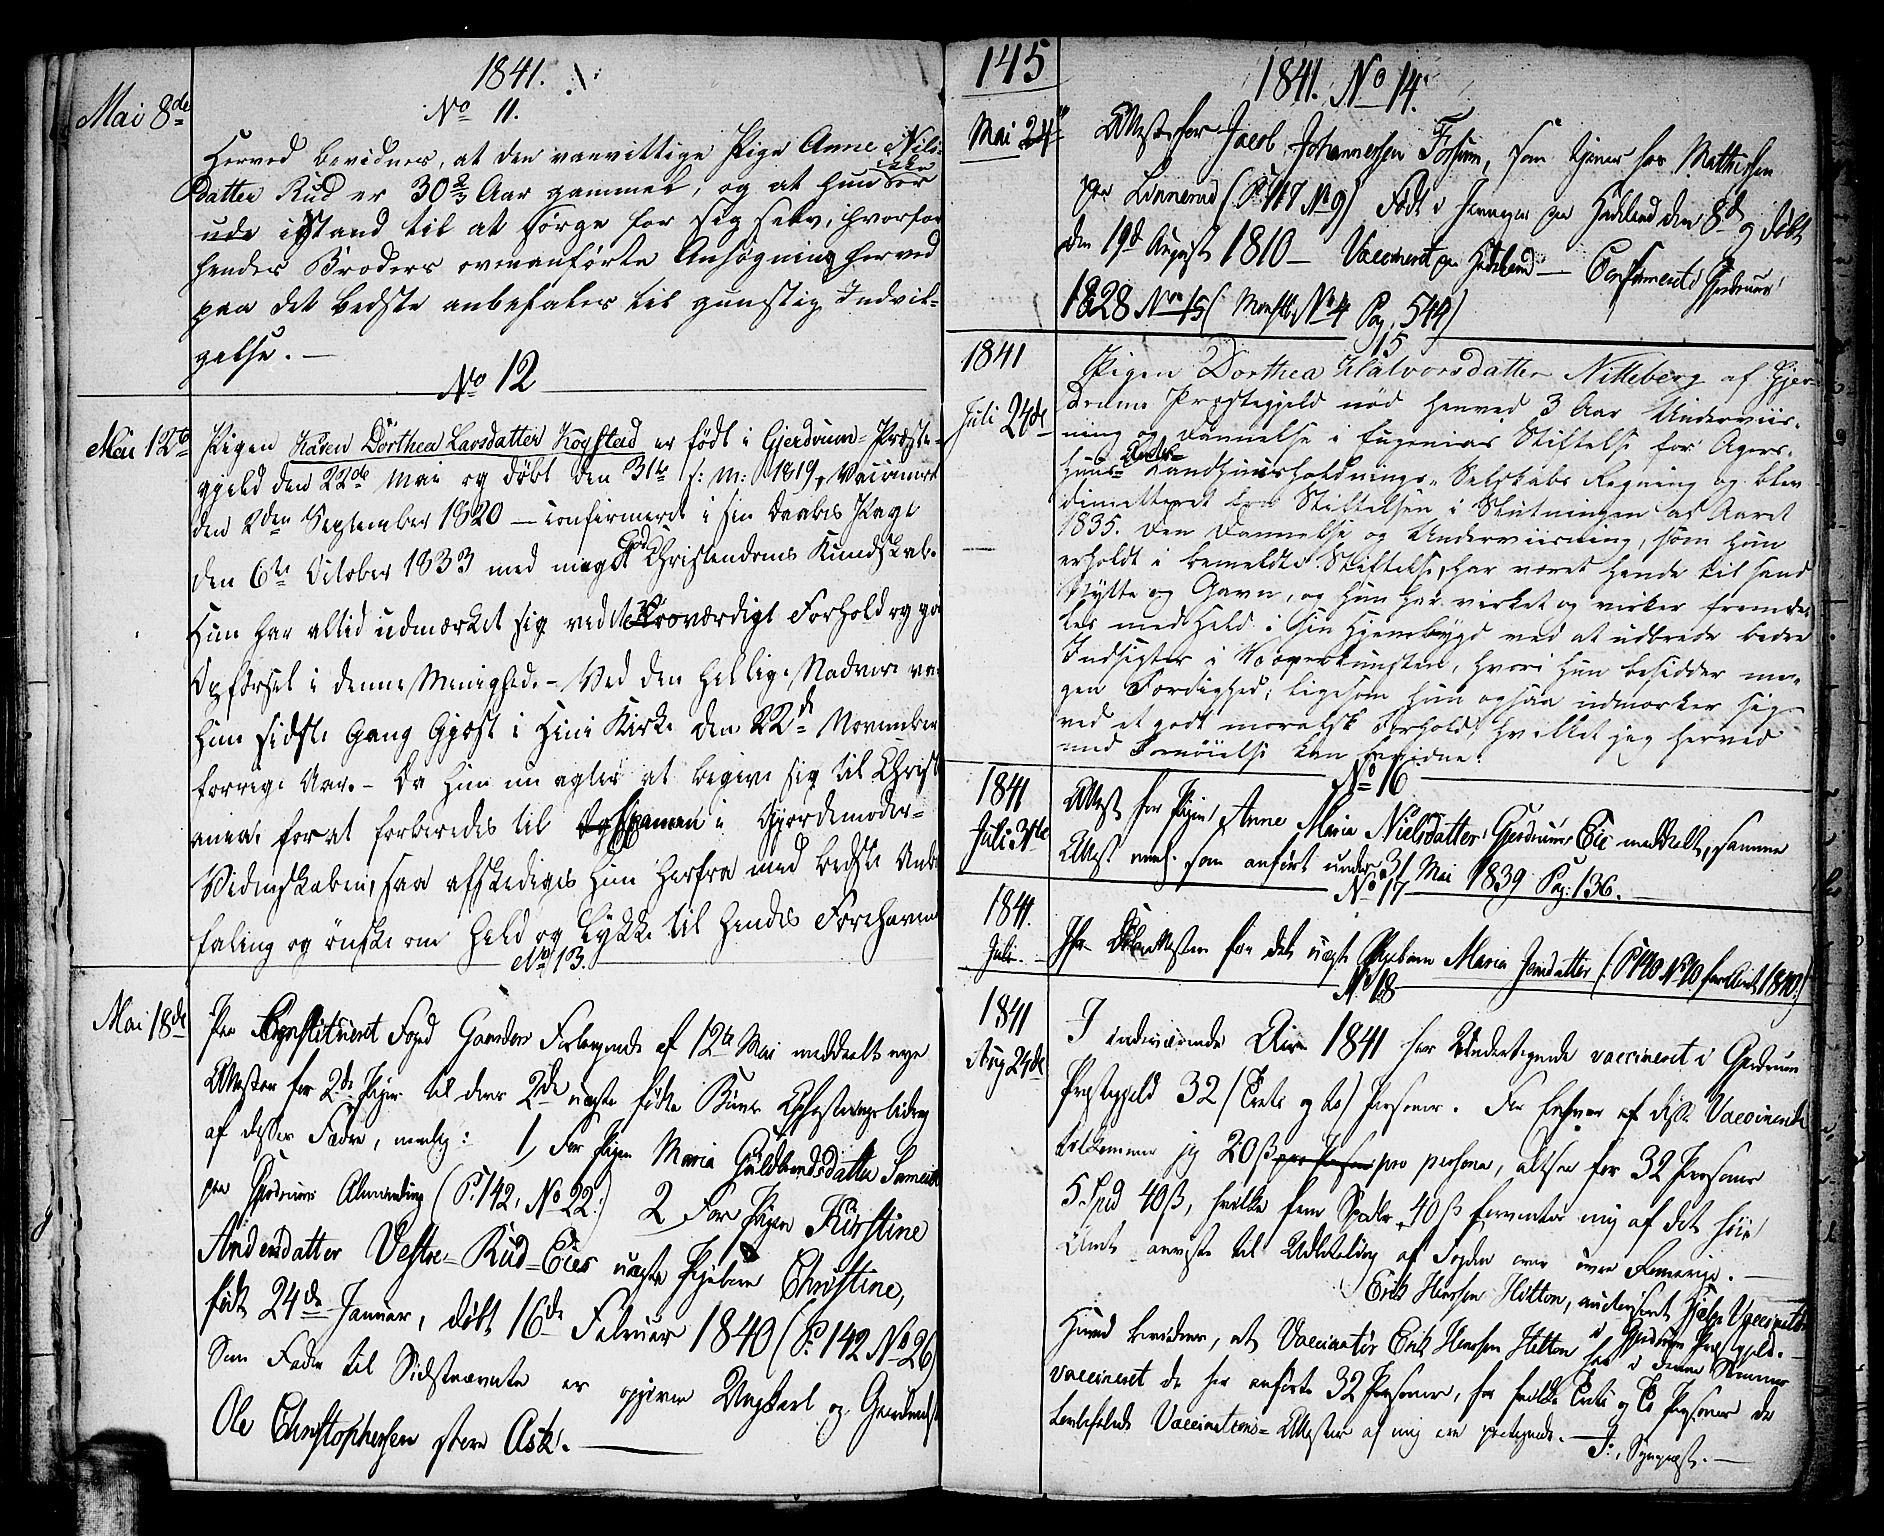 1841.
No 11.
Mai 8de
Herved bevidnes, at den vanvittige Pige Anne Nils-
datter Rud er 30 2/3 Aar gammel, og at hun er
ude istand til at sørge for sig selv, hvorfor
hendes Broders ovenanførte Ansøgning herved
paa det bedste anbefales til gunstig Indvil-
gelse. —
No 12
Mai 12te
Pigen Karen Dorthea Larsdatter Kogstad er født i Gjerdrum Præste-
gjeld den 22de Mai og døbt den 31te s: M: 1819, Vaccineret
den 2den September 1820 — confirmeret i sin Daabs Pagt
den 6te October 1833 med meget god Christendoms Kundskab.
Hun har altid udmærket sig ved et roesværdigt Forhold og god
Opførsel i denne Menighed. – Ved den hellige Nadvere var
hun sidste Gang Gjest i Heni Kirke den 22de November
forrige Aar. – Da hun nu agter at begive sig til Christi-
ania for at forberedes til Examen i Gjordemoder-
Videnskaben, saa afskediges hun herfra med bedste Anbe-
faling og ønske om Held og Lykke til hendes Forehavende
No 13.
Mai 18de
Paa Constitueret Foged Forlangende af 12te Mai meddeelt nye
Attester for 2de Piger til deres 2de uægte fødte Børns Opfostringsbidrag
af disses Fædre, nemlig: 1, For Pigen Maria Guldbrandsdatter
paa Gjerdrums Almending (P. 142, No 22.) 2 For Pigen Kirstine
Andersdatter Vestre-Rud-Eies uægte Pigebarn Christine,
født 24de Januar, døbt 16de Februar 1840 (P. 142 No 26)
Som Fader til Sidstnævnte er opgiven Ungkarl og
Ole Christophersen Ask. —
145
1841. No 14.
Mai 24
Attest for Jacob Johannessen Fossum, som tjener hos Mathiesen
paa Linnerud (P. 117 No 9) Født i Jevnager paa Hadeland den 8de og døbt
den 19de August 1810 — Vaccineret paa Hadeland — Confirmeret i Gjerdrum
1828 No 15 ( No 4 Pag. 544)
15
1841
Juli 24de
Pigen Dorthea Halvorsdatter Nitteberg af Gjer-
drums Præstegjeld nød henved 3 Aar Underviis-
ning og Dannelse i Eugenias Stiftelse for Agers-
huus Amts Landhuusholdnings-Selskabs Regning og blev
dimitteret fra Stiftelsen i Slutningen af Aaret
1835. Den Dannelse og Underviisning, som hun
erholdt i bemeldte Stiftelse, har været hende til sand
Nytte og Gavn, og hun har virket og virker fremde-
les med Held i sin Hjembygd ved at udbrede bedre
Indsigter i Væverkunsten, hvori hun besidder me-
gen Færdighed; ligesom hun ogsaa udmærker sig
ved et godt moralsk Forhold, hvilket jeg herved
med Fornøielse kan bevidne.
No 16
1841
Juli 31te
Attest for Pigen Anne Maria Nielsdatter Gjerdrums Eie meddeelt, samme
Attest som anført under 31 Mai 1839 Pag. 136.
No 17
1841.
Juli
Attesten for det uægte Pigebarn Maria Jensdatter (P. 140 No 10 for Aaret 1840)
No 18
1841
Aug 24de
I indeværende Aar 1841 har Undertegnede vaccineret i Gjerdrum
Præstegjeld 32 (Trette og to) Personer. For Enhver af disse Vaccinerede
tilkommer jeg 20 ß pro persona, altsaa for 32 Personer
5 Spd 40 ß, hvilke fem Spdlr 40 ß forventes mig af det høie
Amt anviste til Udbetaling af Fogden over øvre Romerige. —
Erik Hansen Hilton, autoriseret Hjelpe Vaccinateur
i Gjerdrum Præstegjeld. —
Herved bevidnes, at Vaccinatør Erik Hansen Hilton har i denne Sommer
vaccineret de her anførte 32 Personer, for hvilke Trette og To Personer de
befalede Vaccinations-Attester af mig ere paategnede. —
J: Sognepræst. —